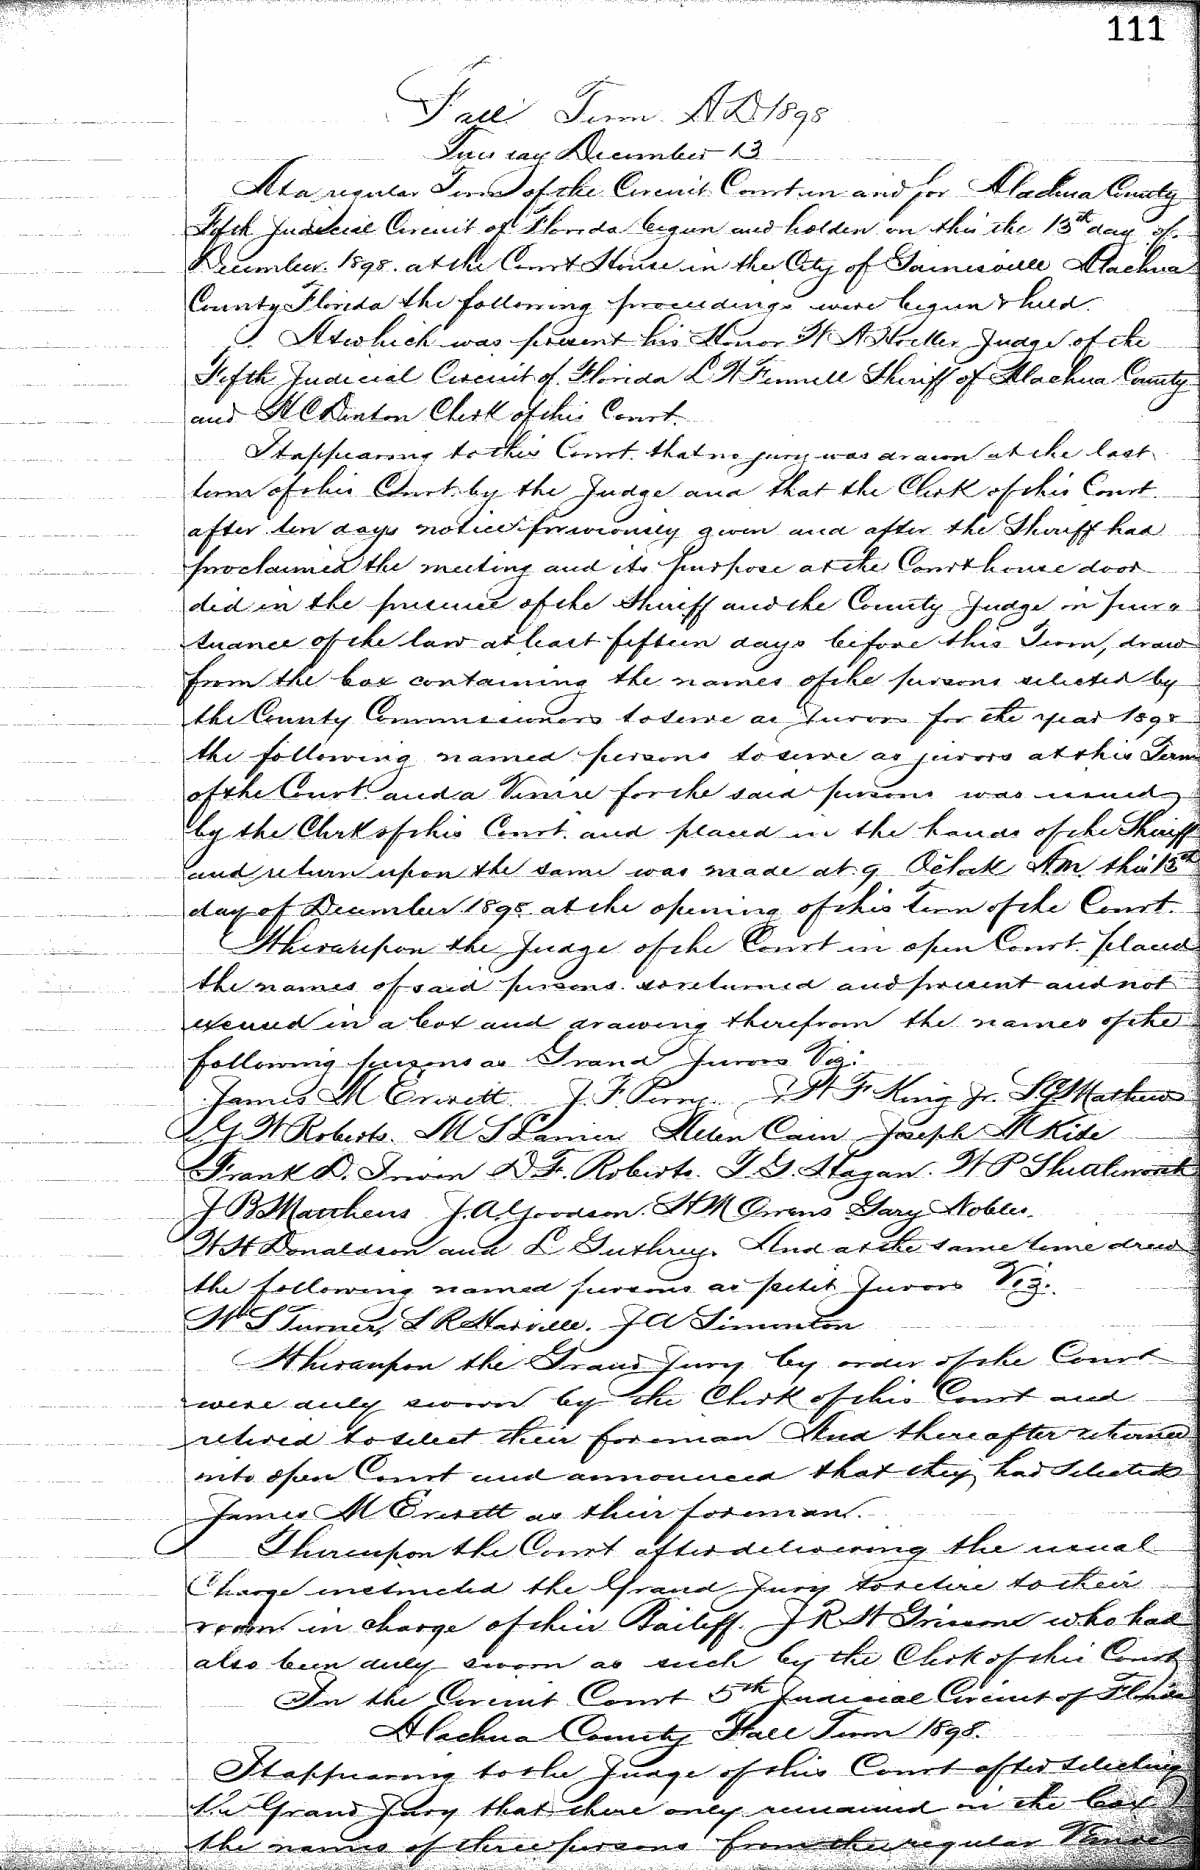 111
Fall Term A D 1898
Tuesday December 13
At a regular Term of the Circuit Court in and for Alachua County
Fifth Judicial Circuit of Florida begun and holden on this the 13th day of
December 1898. at the Court House in the City of Gainesville Alachua
County Florida the following proceedings were begun & held.
At which was present his Honor W A Hocker Judge of the
Fifth Judicial Circuit of Florida L W Fennell Sheriff of Alachua County
and H C Denton Clerk of this Court.
It appearing to this Court that no jury was drawn at the last
term of this Court by the Judge and that the Clerk of this Court
after ten days notice previously given and after the Sheriff had
proclaimed the meeting and its purpose at the Court house door
did in the presence of the Sheriff and the County Judge in pursu
tuance of the law at least fifteen days before this Term, draw
from the box containing the names of the persons selected by
the County Commissioners to serve as Jurors for the year 1898
the following named persons to serve as jurors at this Term
of the Court and a Venire for the said persons was issued
by the Clerk of this Court. and placed in the hands of the Sheriff
and return upon the same was made at 9 Oclock A.M. this 13th
day of December 1898 at the opening of this term of the Court.
Whereupon the Judge of the Court in open Court placed
the names of said persons so returned and present and not
excused in a box and drawing therefrom the names of the
following persons as Grand Jurors Viz:
James M Everett J. F. King Jr. Mathews
G W Roberts. M S Lanier Helen Cain Joseph M Kite
Frank D. Irwin D. F. Roberts. T. G. Hagan. W P
J B Matthews J. A. Goodson. H M Owens Gary Nobles.
W H Donaldson and L Guthrey. And at the same time drew
the following named persons as petit Jurors Viz.
W S Turner, S R Harville. J A Simonton
Whereupon the Grand Jury by order of the Court
were duly sworn by the Clerk of this Court and
retired to select their foreman And thereafter returned
into open Court and announced that they had selected
James M Everett as their foreman.
Thereupon the Court after delivering the usual
Charge instructed the Grand Jury to retire to their
room in charge of their Bailiff. J R W who had
also been duly sworn as such by the Clerk of this Court
In the Circuit Court 5th Judicial Circuit of Florida
Alachua County Fall Term 1898.
It appearing to the Judge of this Court after selecting
the Grand Jury that there only remained in the box
the names of three persons from the regular Venire